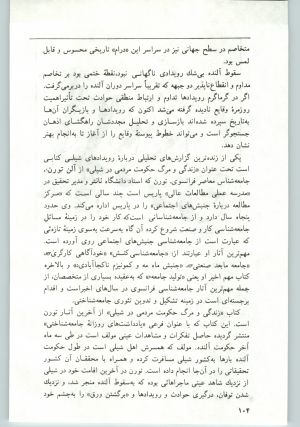 متخاصم در سطح جهانی نیز در سراسر این «درام» تاریخی محسوس و قابل
لمس بود.
سقوط آلنده بی‌شك رویدادی ناگهانی نبود، نقطهٔ ختمی بود بر تخاصم
مداوم و انقطاع‌ناپذیر دو جبهه که تقریباً سراسر دوران آلنده را در برمی‌گرفت.
اگر در گرماگرم رویدادها تداوم و ارتباط منطقی حوادث تحت تأثیر اهمیت
روزمرهٔ وقایع نادیده گرفته می‌شد اکنون که رویدادها و بازیگران آن‌ها
به‌تاریخ سپرده شده‌اند بازسازی و تحلیل مجددشان راهگشای اذهان
جستجوگر است و می‌تواند خطوط پیوستهٔ وقایع را از آغاز تا به‌انجام بهتر
نشان دهد.
یکی از زنده‌ترین گزارش‌های تحلیلی دربارهٔ رویدادهای شیلی کتابی
است تحت عنوان «زندگی و مرگ حکومت مردمی در شیلی» از آلن تورن،
جامعه‌شناس معاصر فرانسوی. تورن که استاد دانشگاه نانتر و مدیر تحقیق در
«مدرسه عملی مطالعات عالی» پاریس است چند سالی است که «مرکز
مطالعه دربارهٔ جنبش‌های اجتماعی» را در پاریس اداره می‌کند. وی حدود
پنجاه سال دارد و از جامعه‌شناسانی است که کار خود را در زمینهٔ مسائل
جامعه‌شناسی کار و صنعت شروع کرده آن گاه به‌سرعت به‌سوی زمینهٔ تازه‌ئی
که عبارت است از جامعه‌شناسی جنبش‌های اجتماعی روی آورده است.
مهم‌ترین آثار او عبارتند از: «جامعه‌شناسی کنش»، «خودآگاهی کارگری»،
«جامعه مابعد صنعتی»، «جنبش ماه مه و کمونیزم ناکجاآبادی» و بالاخره
کتاب مهم اخیر او یعنی «تولید جامعه» که به‌عقیده بسیاری از متخصصان، از
جمله مهم‌ترین آثار جامعه‌شناسی فرانسوی در سال‌های اخیر است و اقدام
برجسته‌ای است در زمینه تشکیل و تدوین تئوری جامعه‌شناختی.
کتاب «زندگی و مرگ حکومت مردمی در شیلی» از آخرین آثار تورن
است. این کتاب که با عنوان فرعی «یادداشت‌های روزانهٔ جامعه‌شناختی»
منتشر گردیده حاصل تفکرات و مشاهدات عینی مولف است در طی سه ماه
آخر حکومت آلنده. مولف که همسرش اهل شیلی است در طول حکومت
آلنده بارها به‌کشور شیلی مسافرت کرده و همراه با محققان آن کشور
تحقیقاتی را در آن‌جا انجام داده است. تورن در آخرین اقامت خود در شیلی
از نزدیك شاهد عینی ماجراهائی بوده که به‌سقوط آلنده منجر شد، و نزدیك
شدن توفان، درگیری حوادث و رویدادها و «برگشتن ورق» را به‌چشم خود
۱۰۴